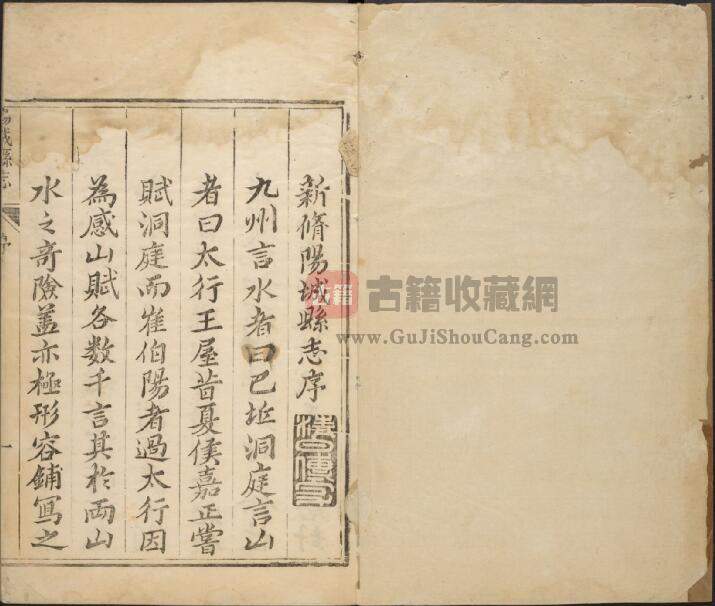 新脩陽城縣志序
九州言水者曰巴丘洞庭言山
者曰太行王屋昔夏侯嘉正嘗
賦洞庭而崔伯陽者過太行因
為感山賦各數千言其於兩山
水之奇險葢亦極形容鋪寫之
陽城縣志
序
一
古籍
古籍收藏網
www.GuJiShouCang.com